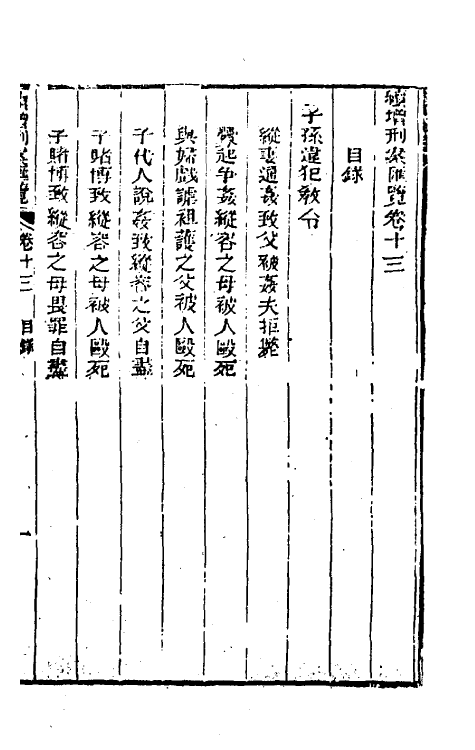 續增刑案匯覽卷十三
目錄
子孫違犯教令
縱妻通姦致父被姦夫拒斃
釁起爭姦縱容之母被人毆死
與婦戲謔袒護之父被人毆死
子代人說姦致縱容之父自盡
子賭博致縱容之母被人毆死
子賭博致縱容之母畏罪自盡
續增刑案匯覽 卷十三 目錄 一